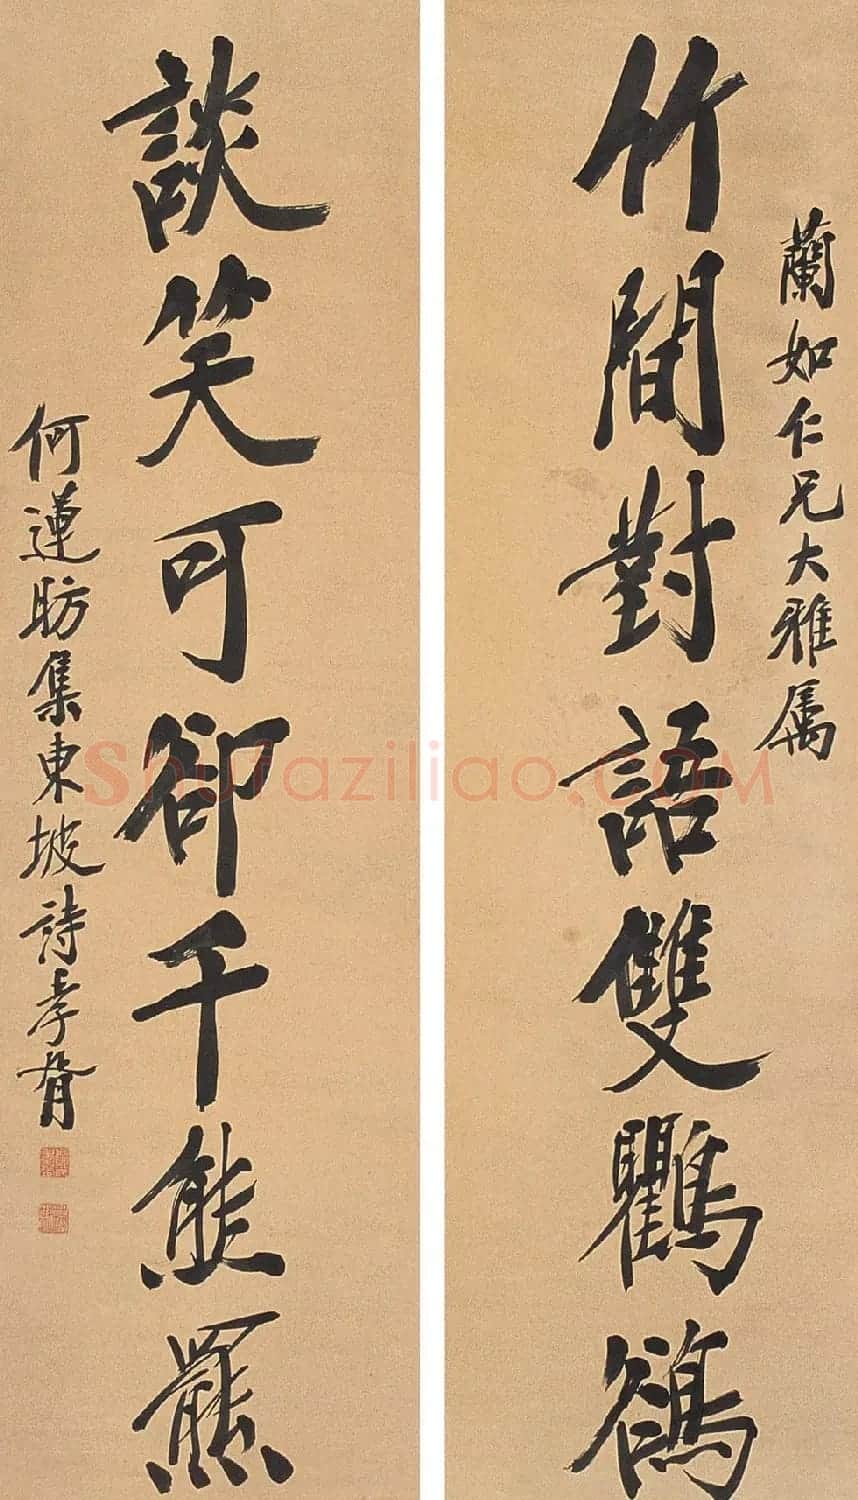 蘭如仁兄大雅属
竹間對語雙鸜鵒
談笑可卻千熊羆
何蓮昉集東坡詩孝胥
Shufaziliao.COM